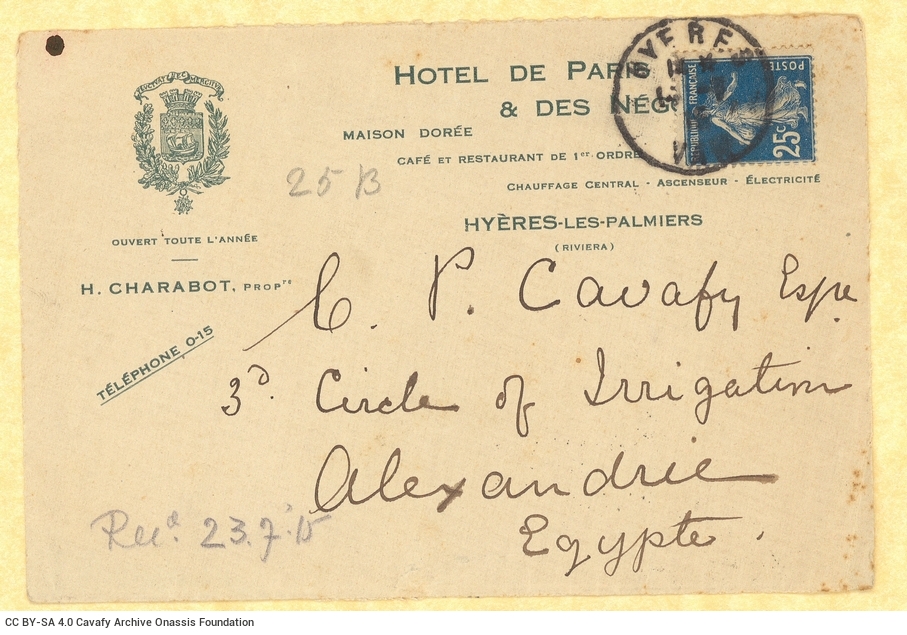 FLUCTUAT NEC MERGITUR
HOTEL DE PAR
& DES NÉGO
MAISON DORÉE
CAFÉ ET RESTAURANT DE 1er ORDRE
CHAUFFAGE CENTRAL - ASCENSEUR - ÉLECTRICITÉ
HYÈRES-LES-PALMIERS
(RIVIERA)
OUVERT TOUTE L'ANNÉE
H. CHARABOT, PROPre
TÉLÉPHONE 0-15
HYÈRES
VAR
RÉPUBLIQUE FRANÇAISE
POSTES
25c
25 B
C. P. Cavafy Esqre
3d. Circle of Irrigation
Alexandrie
Egypte.
Recd. 23.7.15
CC BY-SA 4.0 Cavafy Archive Onassis Foundation